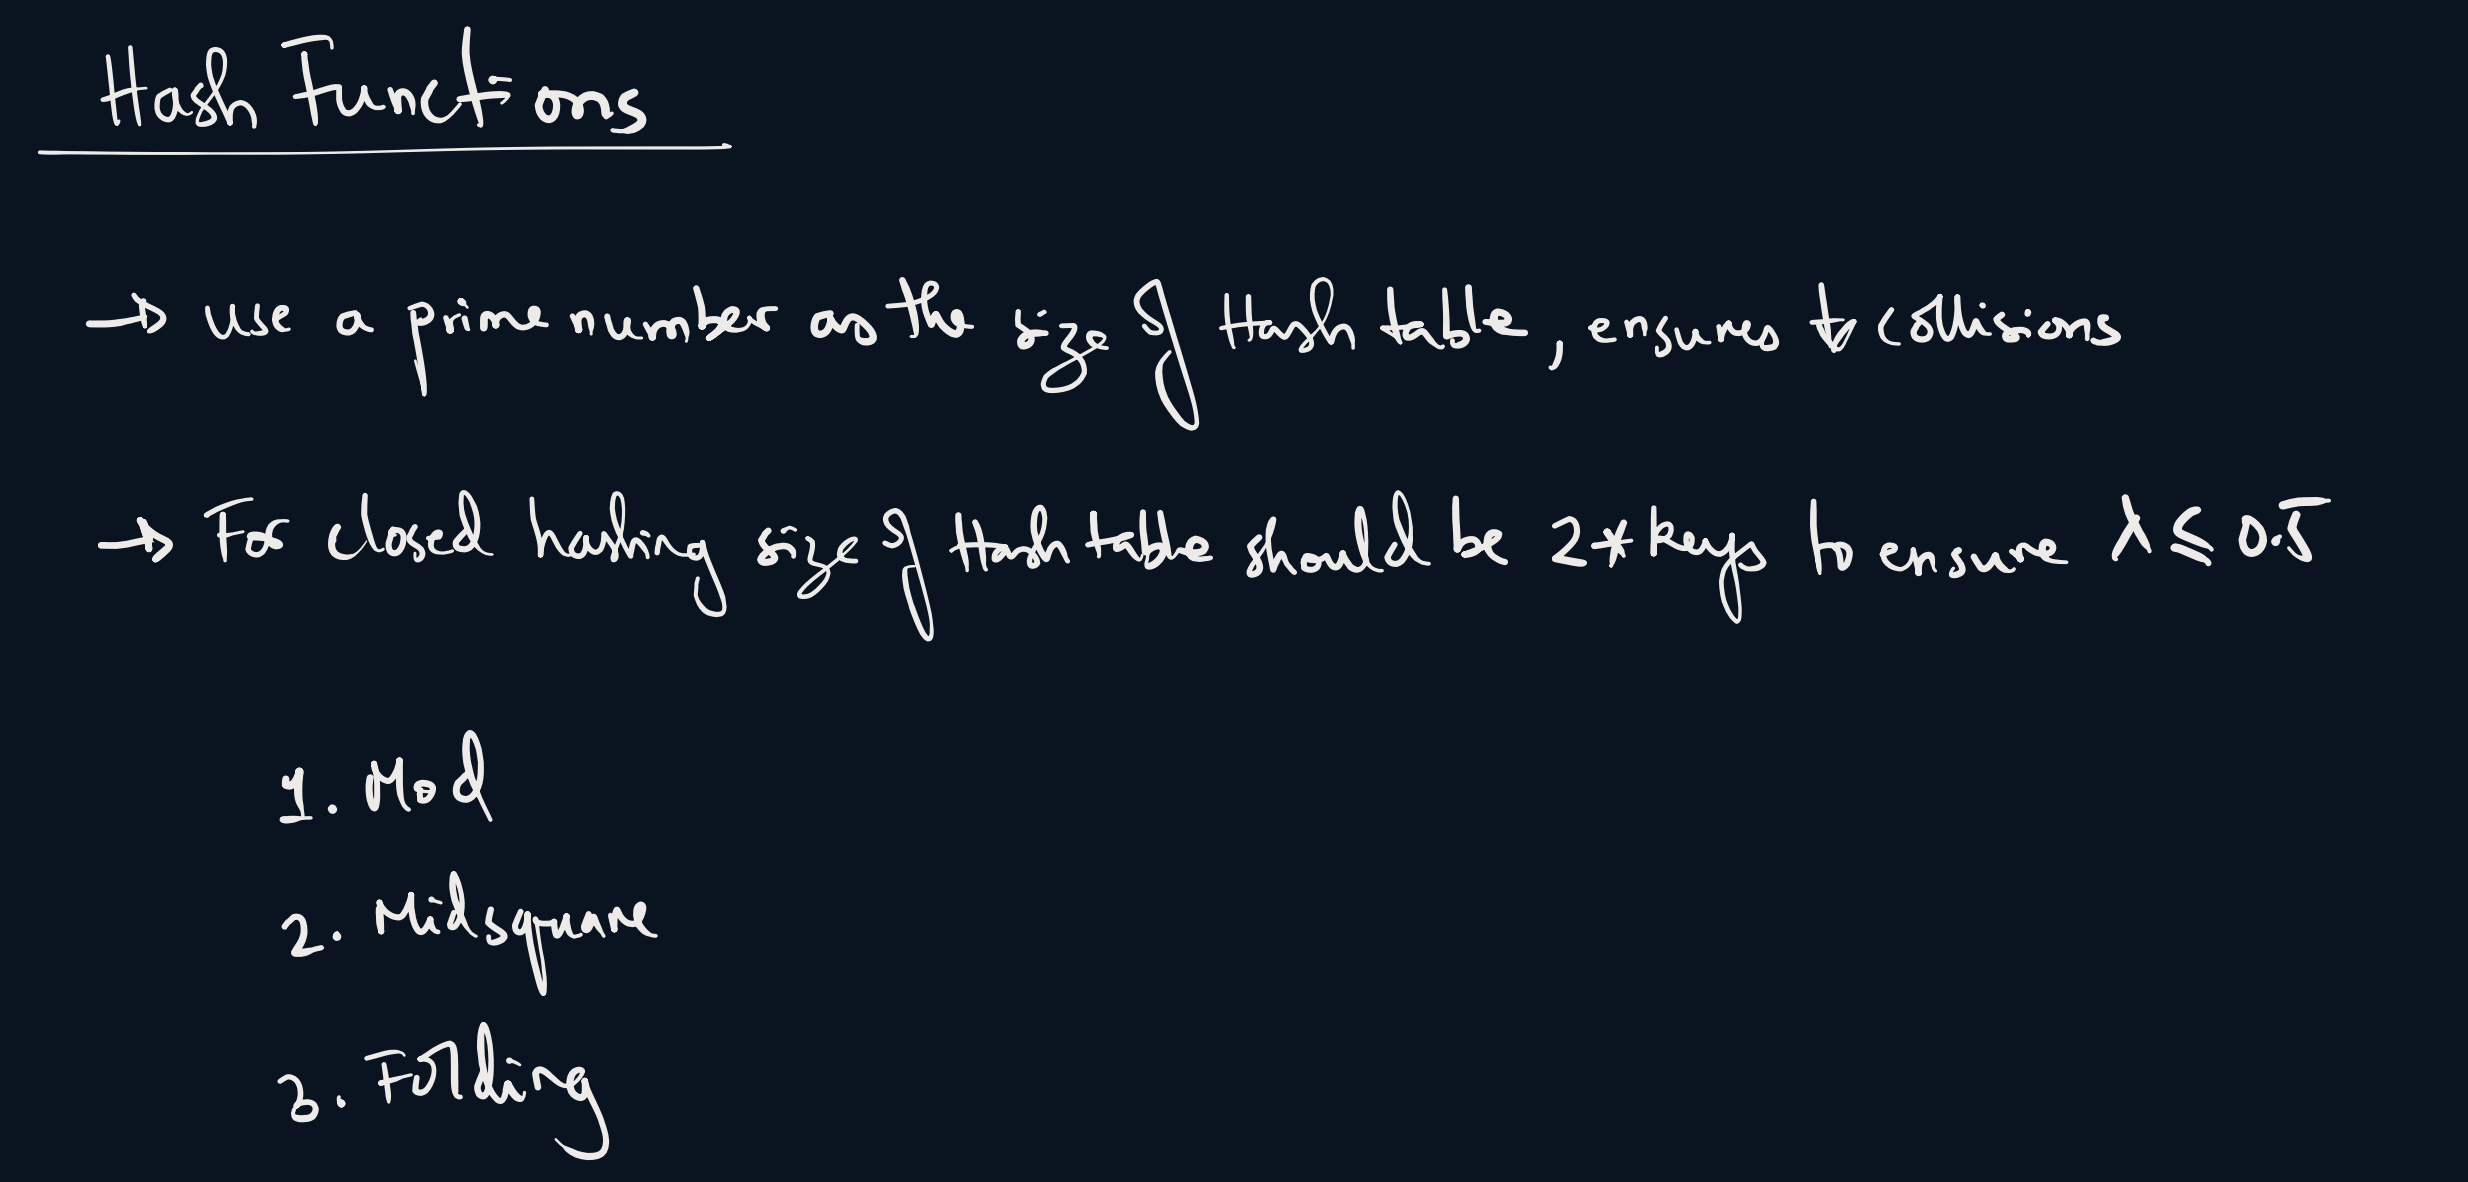 Hash Functions
→ Use a prime number as the size of Hash table, ensures ↓ collisions
→ For closed hashing size of Hash table should be 2*keys to ensure λ ≤ 0.5
1. Mod
2. Midsquare
3. Folding